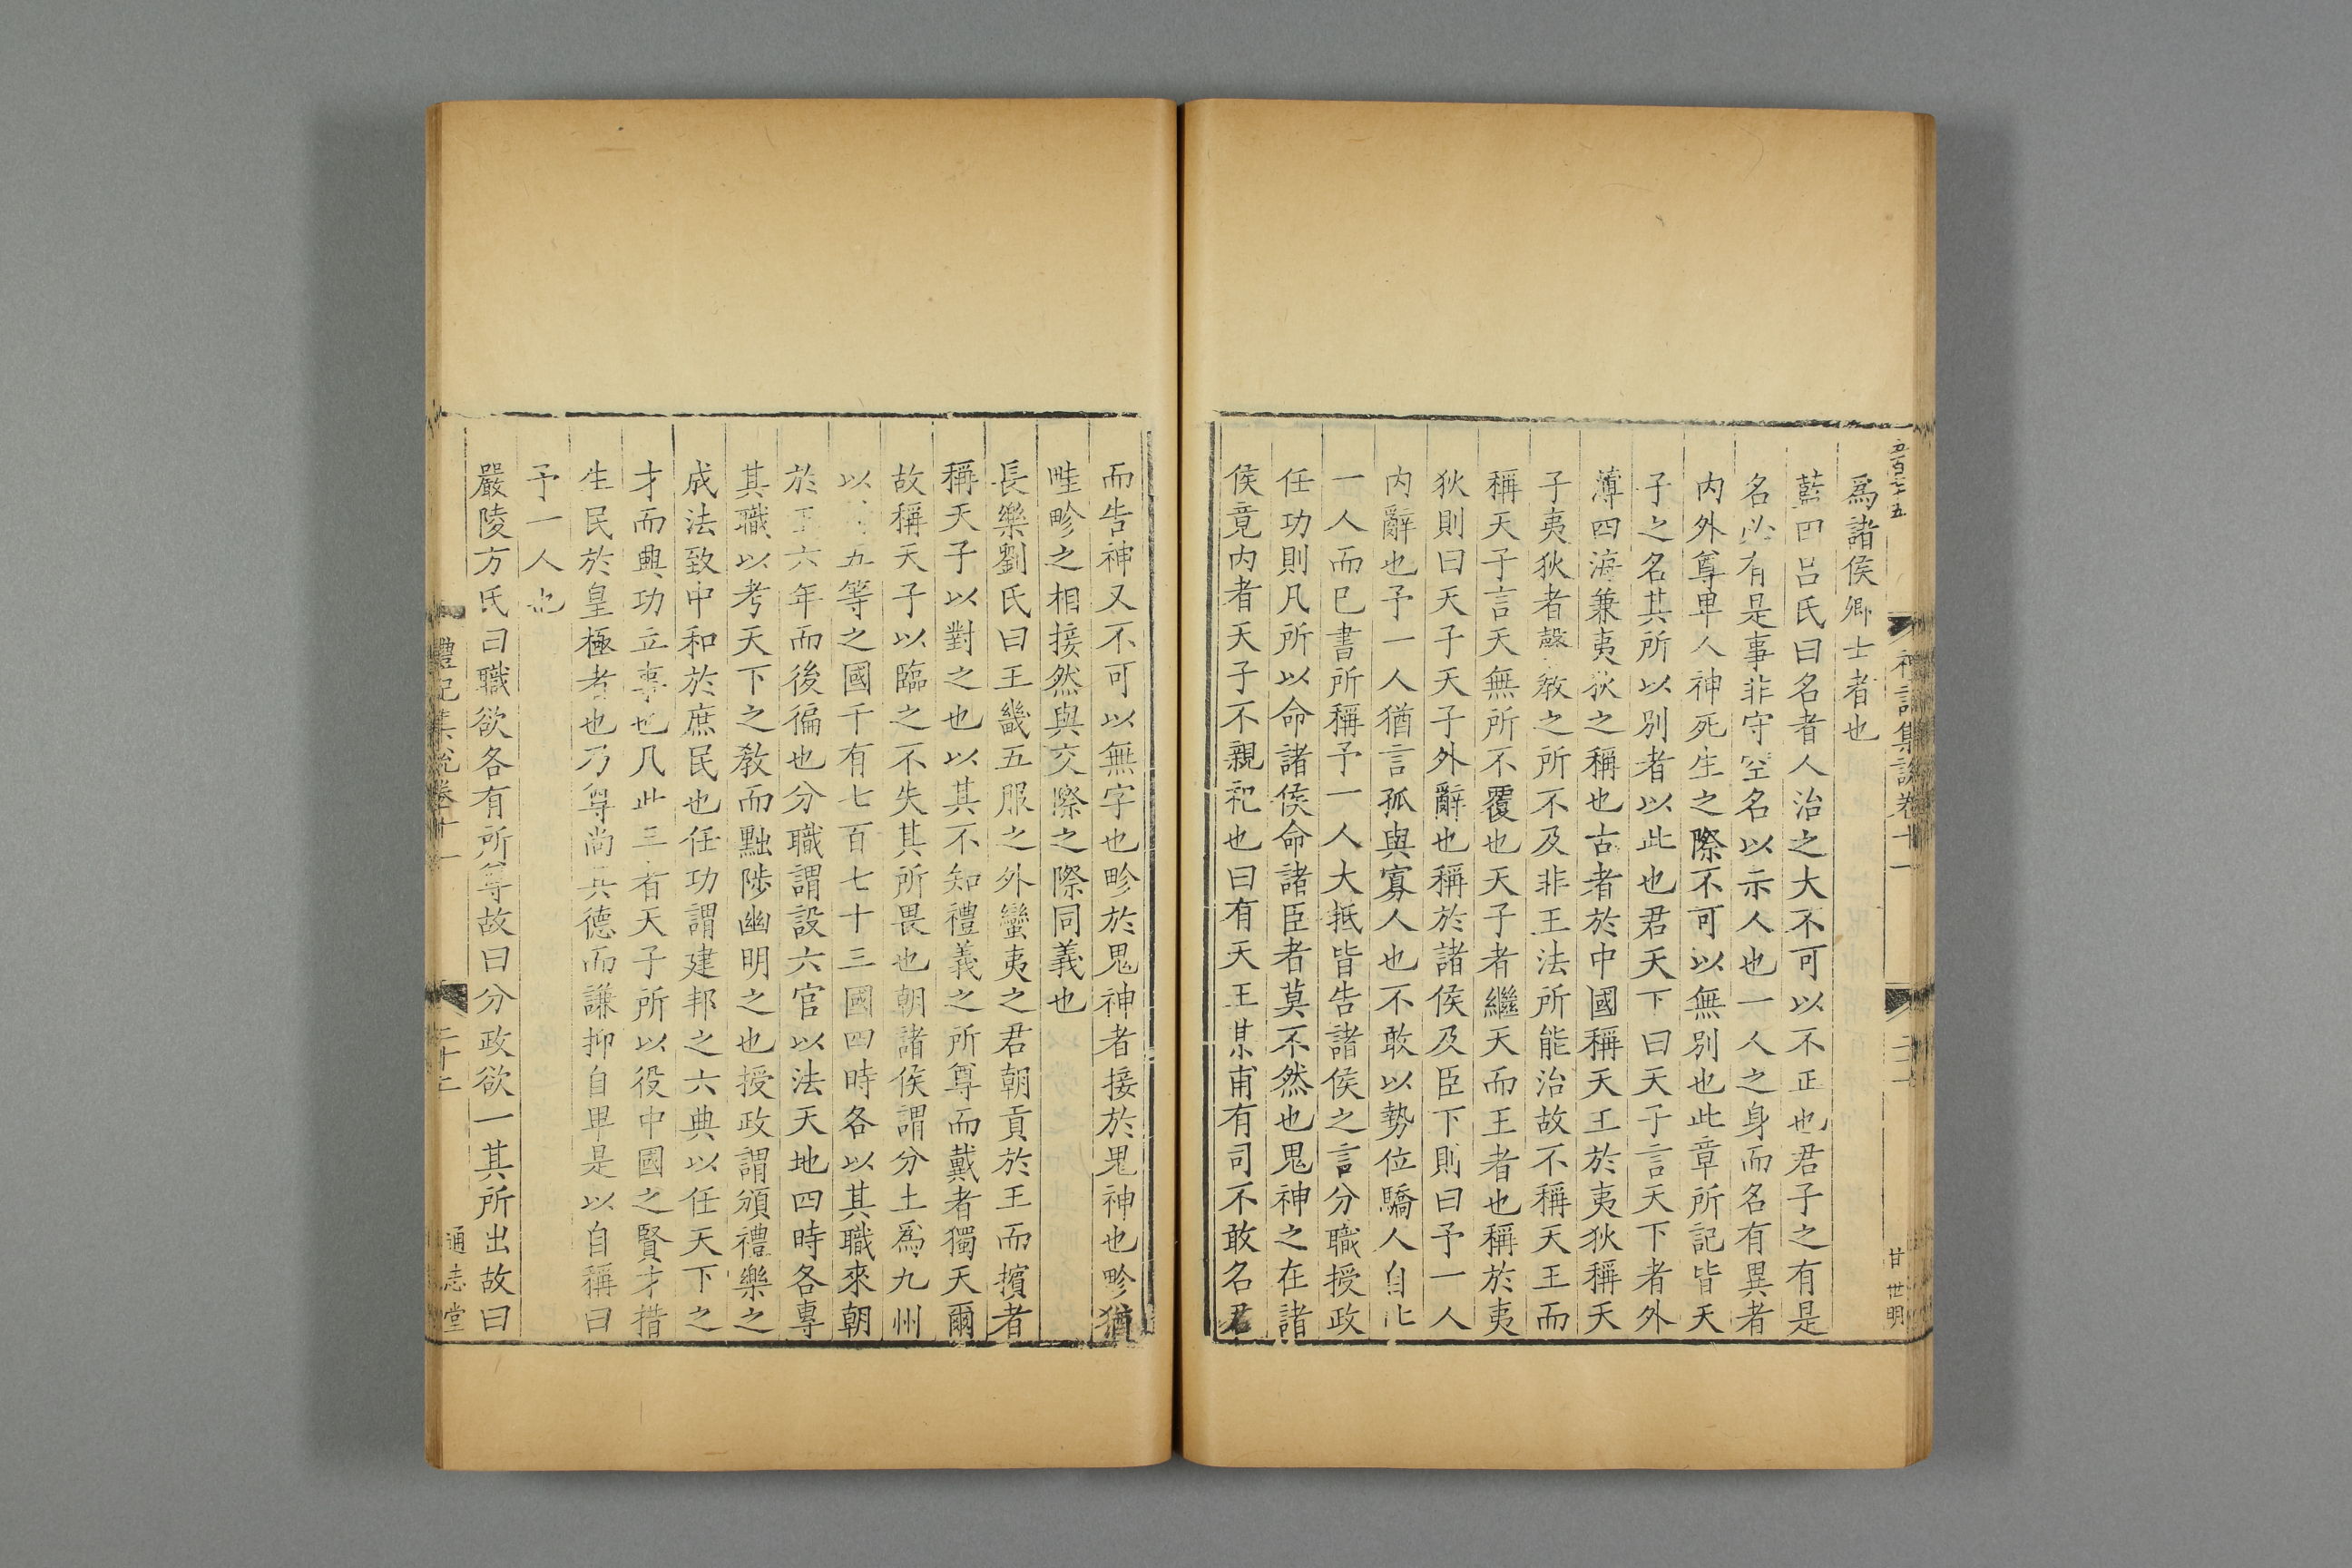 五百七十五
禮記集說卷十一
二十一
甘世明
爲諸侯卿士者也
藍田呂氏曰名者人治之大不可以不正也君子之有是
名必有是事非守空名以示人也一人之身而名有異者
内外尊卑人神死生之際不可以無別也此章所記皆天
子之名其所以別者以此也君天下曰天子言天下者外
薄四海兼夷狄之稱也古者於中國稱天王於夷狄稱天
子夷狄者聲敎之所不及非王法所能治故不稱天王而
稱天子言天無所不覆也天子者繼天而王者也稱於夷
狄則曰天子天子外辭也稱於諸侯及臣下則曰予一人
内辭也予一人猶言孤與寡人也不敢以勢位驕人自比
一人而巳書所稱予一人大抵皆告諸侯之言分職授政
任功則凡所以命諸侯命諸臣者莫不然也鬼神之在諸
侯竟内者天子不親祀也曰有天王某甫有司不敢名君
而告神又不可以無字也畛於鬼神者接於鬼神也畛猶
畦畛之相接然與交際之際同義也
長樂劉氏曰王畿五服之外蠻夷之君朝貢於王而擯者
稱天子以對之也以其不知禮義之所尊而戴者獨天爾
故稱天子以臨之不失其所畏也朝諸侯謂分土爲九州
以五等之國千有七百七十三國四時各以其職來朝
於王六年而後徧也分職謂設六官以法天地四時各專
其職以考天下之敎而黜陟幽明之也授政謂頒禮樂之
成法致中和於庶民也任功謂建邦之六典以任天下之
才而興功立事也凡此三者天子所以役中國之賢才措
生民於皇極者也乃尊尚其德而謙抑自卑是以自稱曰
予一人也
嚴陵方氏曰職欲各有所專故曰分政欲一其所出故曰
禮記集說卷十一
二十二
通志堂